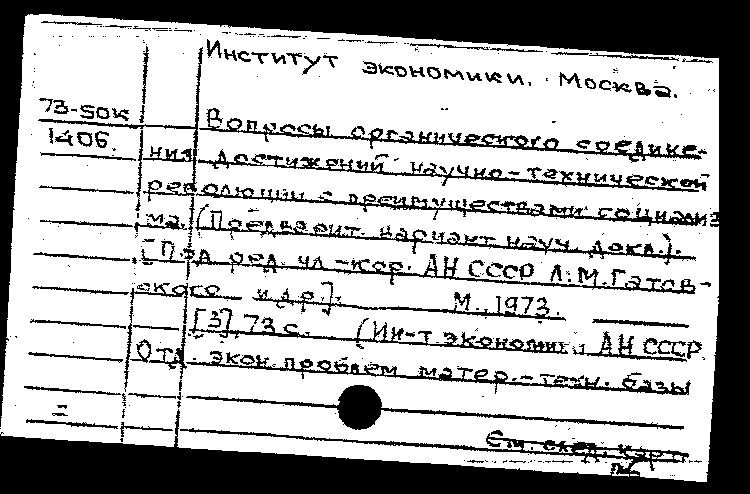 Институт экономики. Москва.
73-50к
1406.
Вопросы органического соедине-
ния достижений научно-технической
революции с преимуществами социализ
ма. (Предварит. вариант науч. докл.).
[Под ред. чл-кор. АН СССР Л.М.Гатов-
ского и др.].
М., 1973.
[3], 73 с. (Ин-т экономики АН СССР
Отд. экон. проблем матер.-техн. базы
См. след. карт.